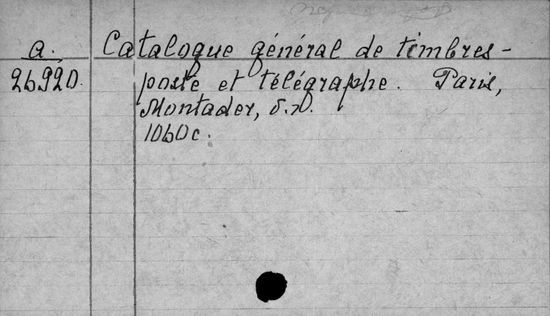 a.
26920.
Catalogue général de timbres-
poste et télégraphe. Paris,
Montader, s.d.
1060 c.